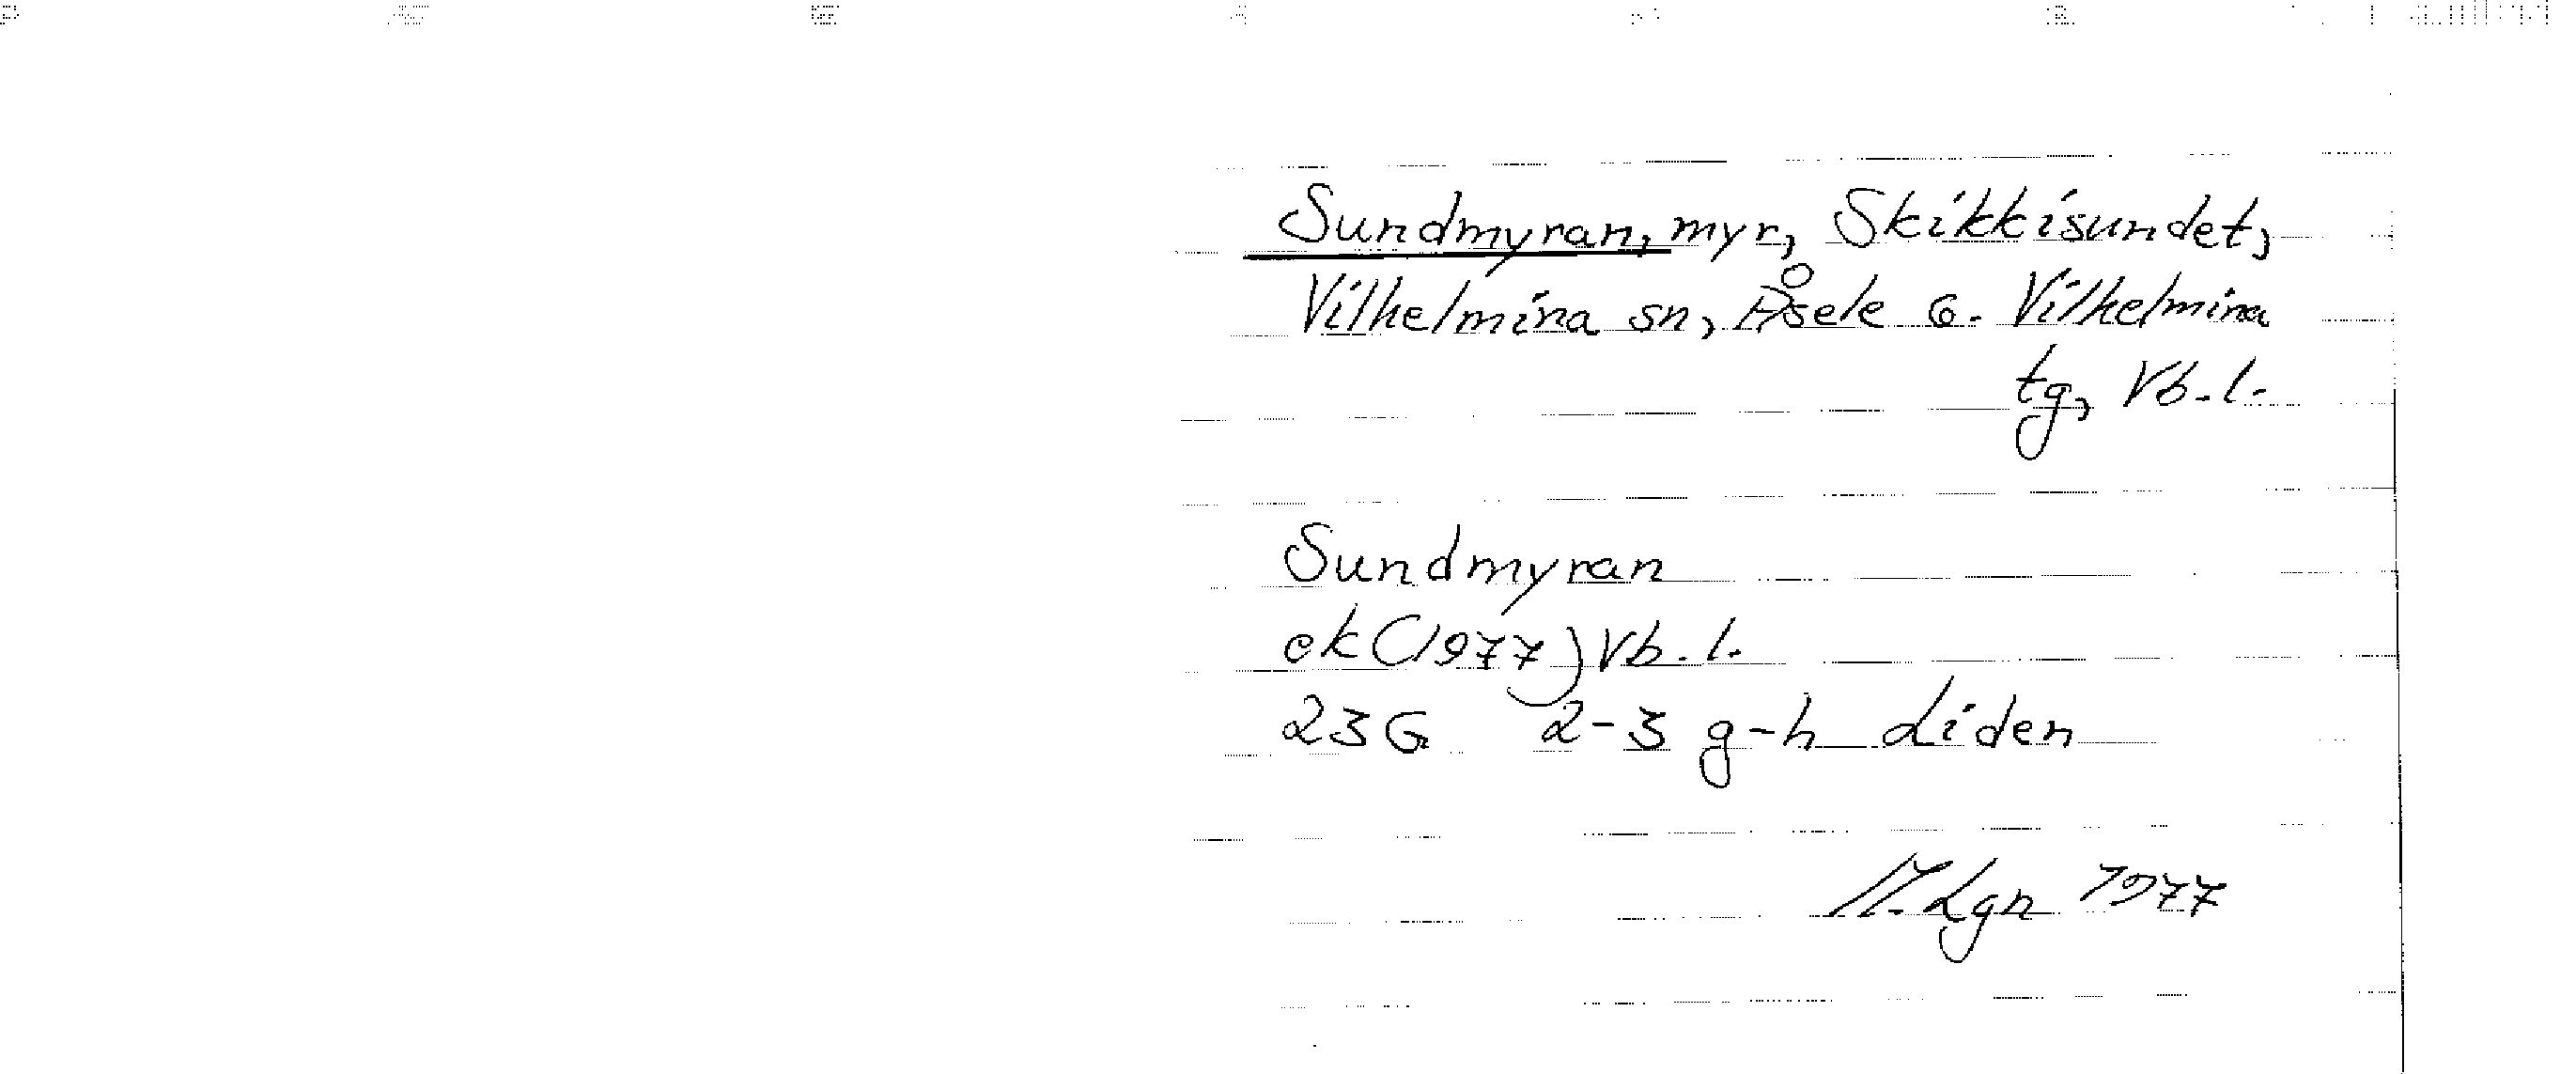 Sundmyran, myr, Skikkisundet,
Vilhelmina sn, Åsele o. Vilhelmina
tg, Vb.l.
Sundmyran
ek (1977) Vb.l.
23G 2-3 g-h Liden
M.Lgn 1977